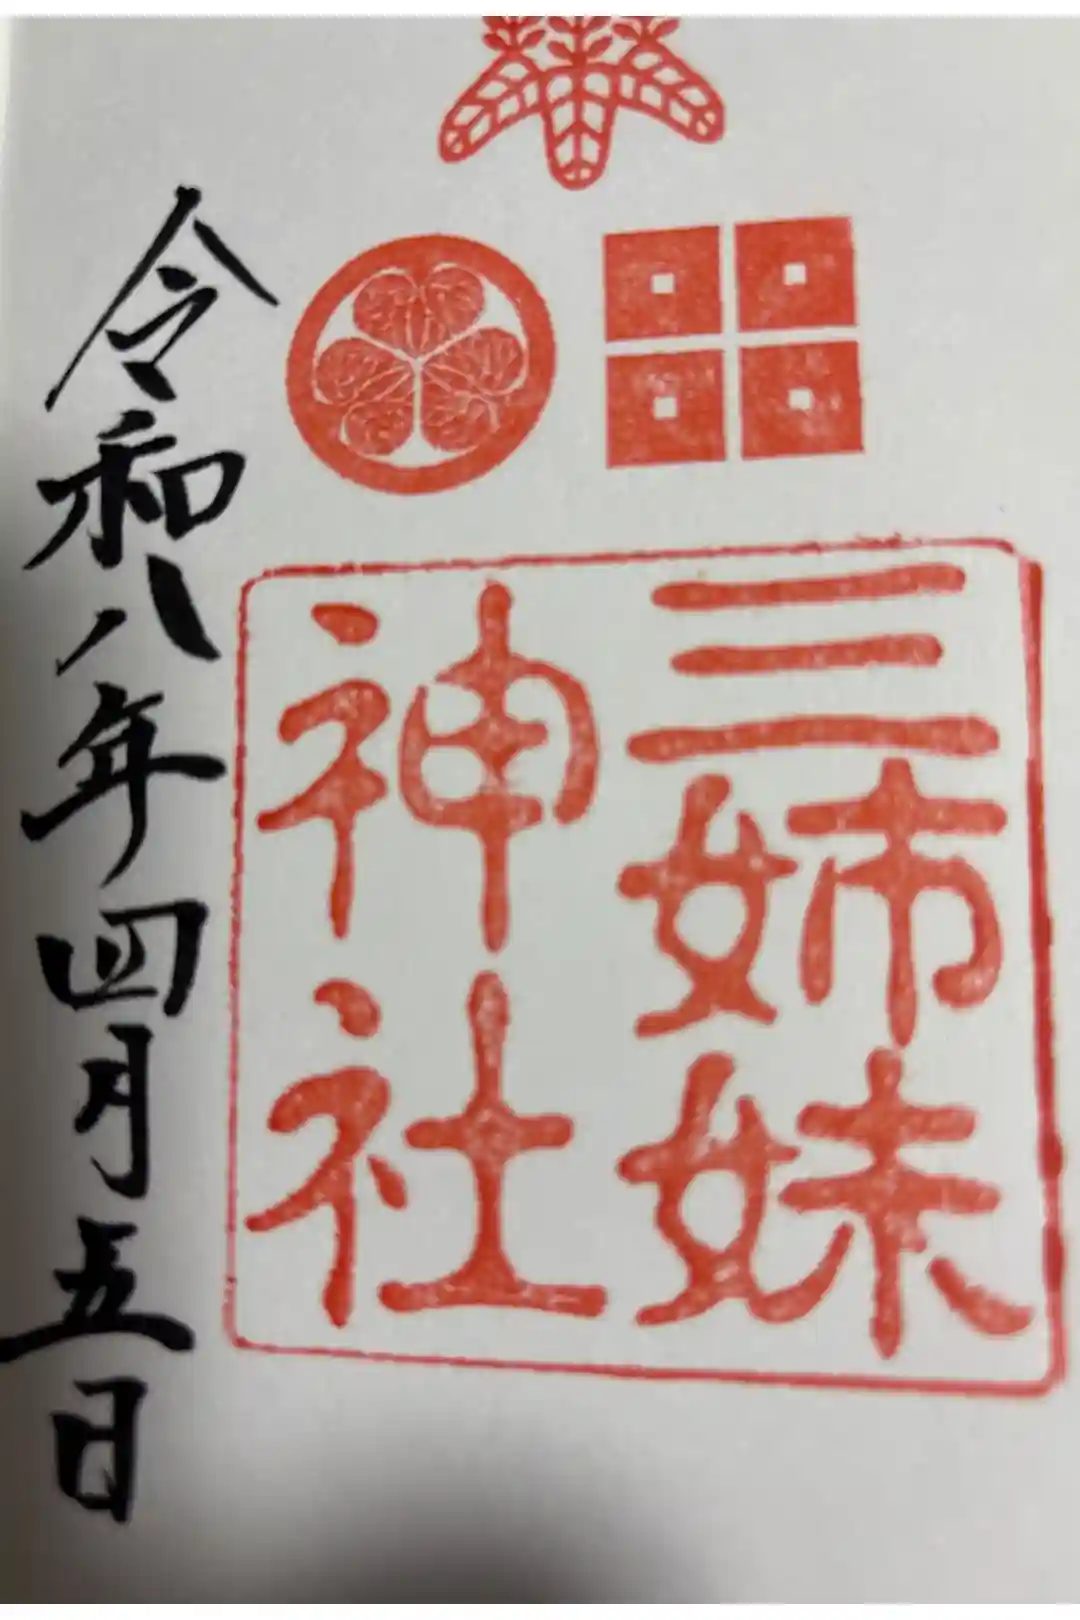 三姉妹
神社
令和八年四月五日